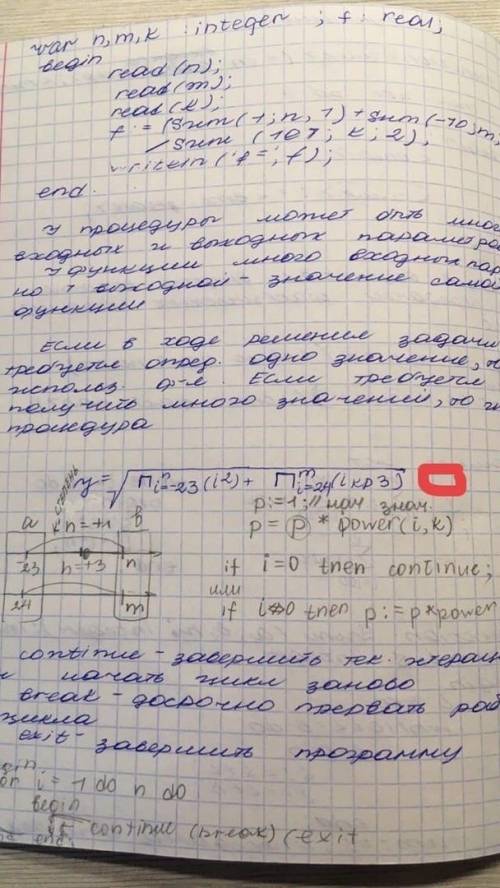 var n,m,k : integer ; f : real;
begin
read(n);
read(m);
read(k);
f := (sum(1; n, 1) + sum(-10, m,
/ sum (107; k; 2);
writeln('f=', f);
end.
У процедуры может быть мно
входных и выходных параметров
У функции много входных пар
но 1 выходной - значение самой
функции
Если в ходе решения задачи
требуется опред. одно значение, то
использ. ф-я. Если требуется
получить много значений, то
процедура
y = √ П i=-23 n (i2) + П m i=24 (i кр 3)
степень
p:=1; // нач знач.
p = p * power(i, k)
a
k
n = +1
b
-23
h=+3
n
24
m
if i=0 then continue;
или
if i<>0 then p := p*power
continue - завершить тек. итерац
и начать цикл заново
break - досрочно прервать раб
цикла
exit - завершить программу
for i = 1 do n do
begin
continue (break) (exit